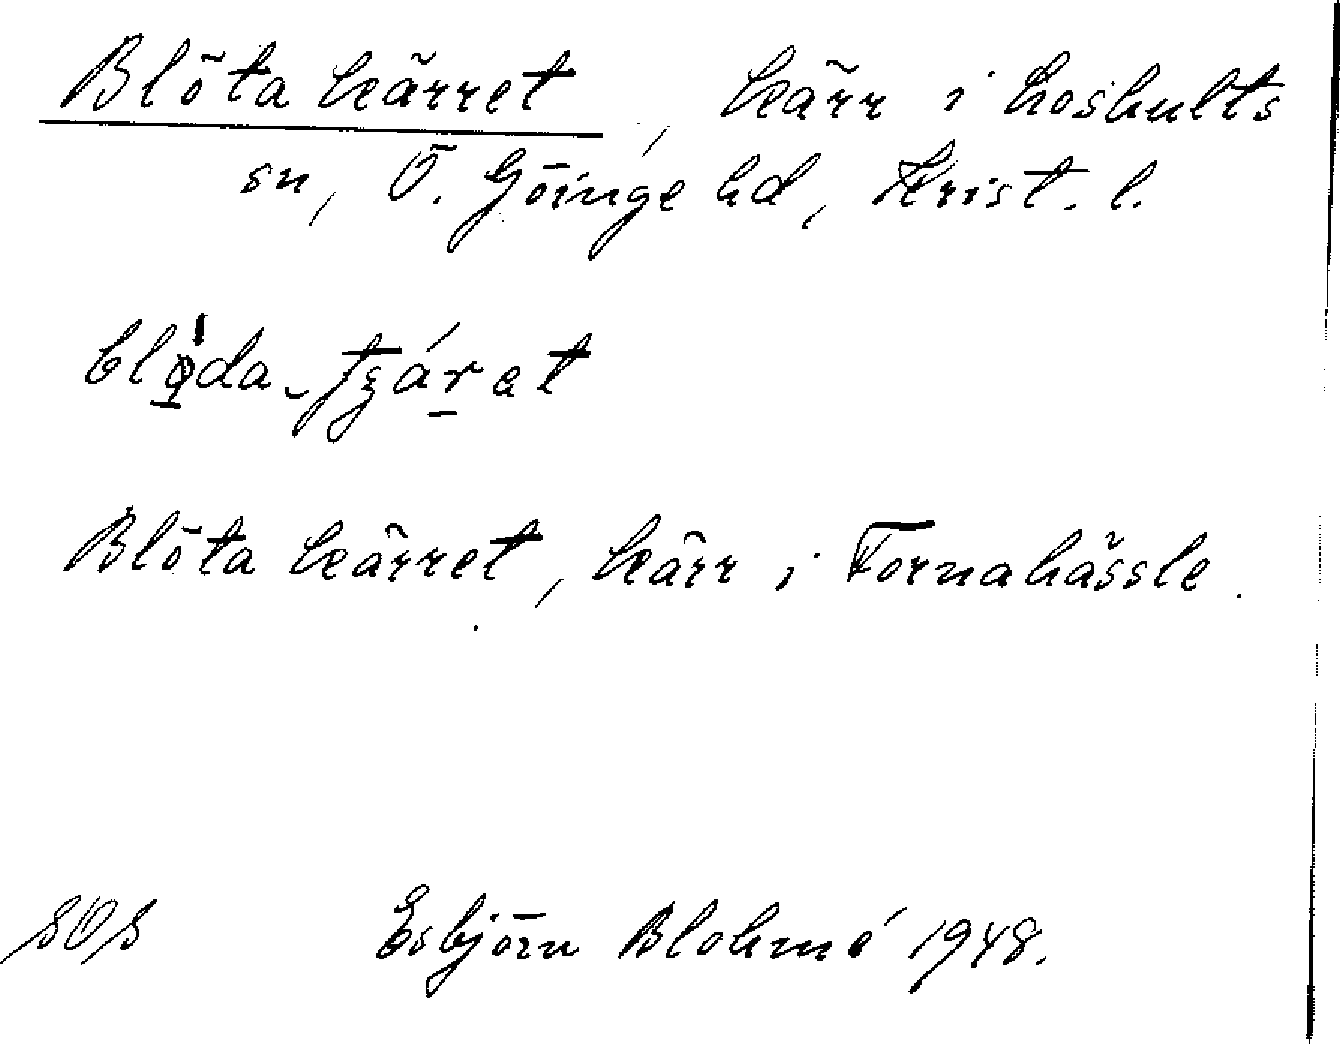 Blöta kärret, kärr i Loshults
sn, Ö. Göinge hd, Krist. l.
Blöta kärret, kärr i Fornahässle.
SOS Esbjörn Blohmé 1948.